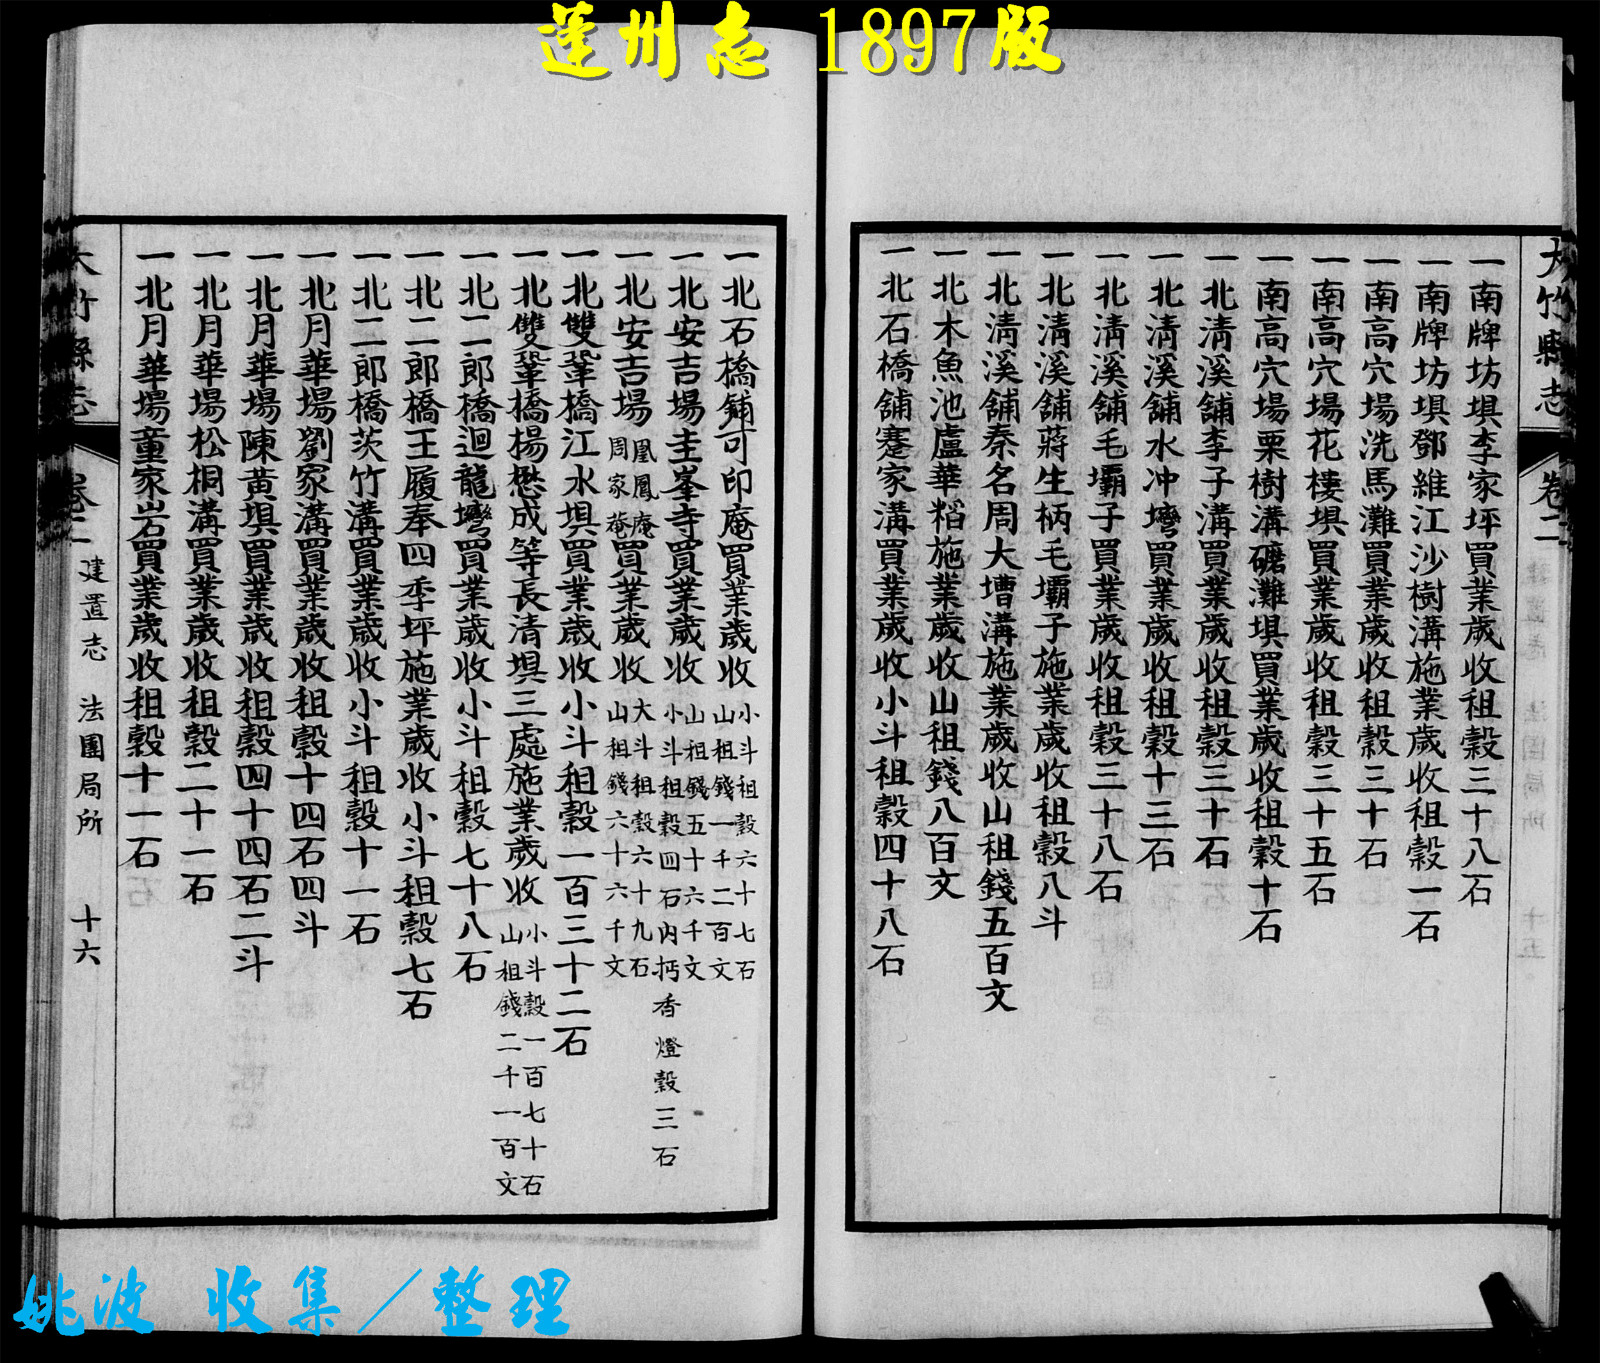 蓬州志 1897版
大竹縣志 卷二
一南牌坊埧李家坪買業歲收租穀三十八石
一南牌坊埧鄧維江沙樹溝施業歲收租穀一石
一南高穴場洗馬灘買業歲收租穀三十石
一南高穴場花樓埧買業歲收租穀三十五石
一南高穴場栗樹溝磏灘埧買業歲收租穀十石
一北清溪舖李子溝買業歲收租穀三十石
一北清溪舖水冲塆買業歲收租穀十三石
一北清溪舖毛壩子買業歲收租穀三十八石
一北清溪舖蔣生柄毛壩子施業歲收租穀八斗
一北清溪舖秦名周大塘溝施業歲收山租錢五百文
一北木魚池盧華稻施業歲收山租錢八百文
一北石橋舖蹇家溝買業歲收小斗租穀四十八石
一北石橋舖可印庵買業歲收小斗租穀六十七石山租錢一千二百文
一北安吉場主峯寺買業歲收山租錢五十六千文小斗租穀四石內抅香燈穀三石
一北安吉場鳳凰庵周家菴買業歲收大斗租穀六十九石山租錢六十六千文
一北雙鞏橋江水埧買業歲收小斗租穀一百三十二石
一北雙鞏橋楊懋成等長清埧三處施業歲收小斗穀一百七十石山租錢二千一百文
一北二郎橋迴龍塆買業歲收小斗租穀七十八石
一北二郎橋王履奉四季坪施業歲收小斗租穀七石
一北二郎橋茨竹溝買業歲收小斗租穀十一石
一北月華場劉家溝買業歲收租穀十四石四斗
一北月華場陳黃埧買業歲收租穀四十四石二斗
一北月華場松桐溝買業歲收租穀二十一石
一北月華場童家岩買業歲收租穀十一石
大竹縣志 卷二 建置志 法團局所 十六
姚波 收集／整理